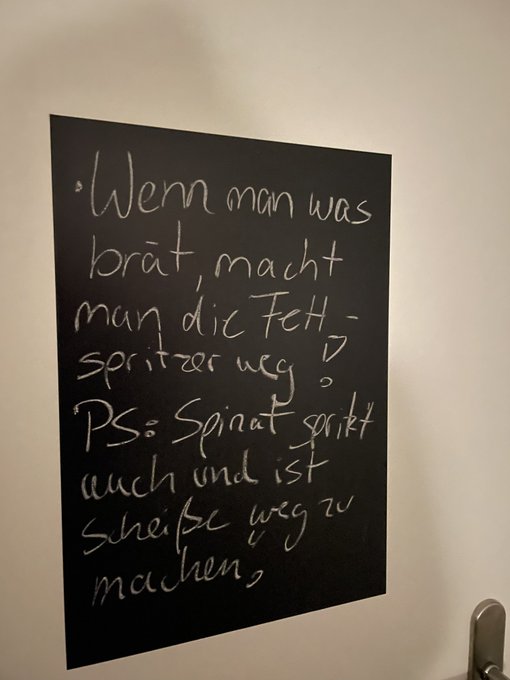 • Wenn man was
brät, macht
man die Fett-
spritzer weg!
PS: Spinat spritzt
auch und ist
scheiße weg zu
machen!